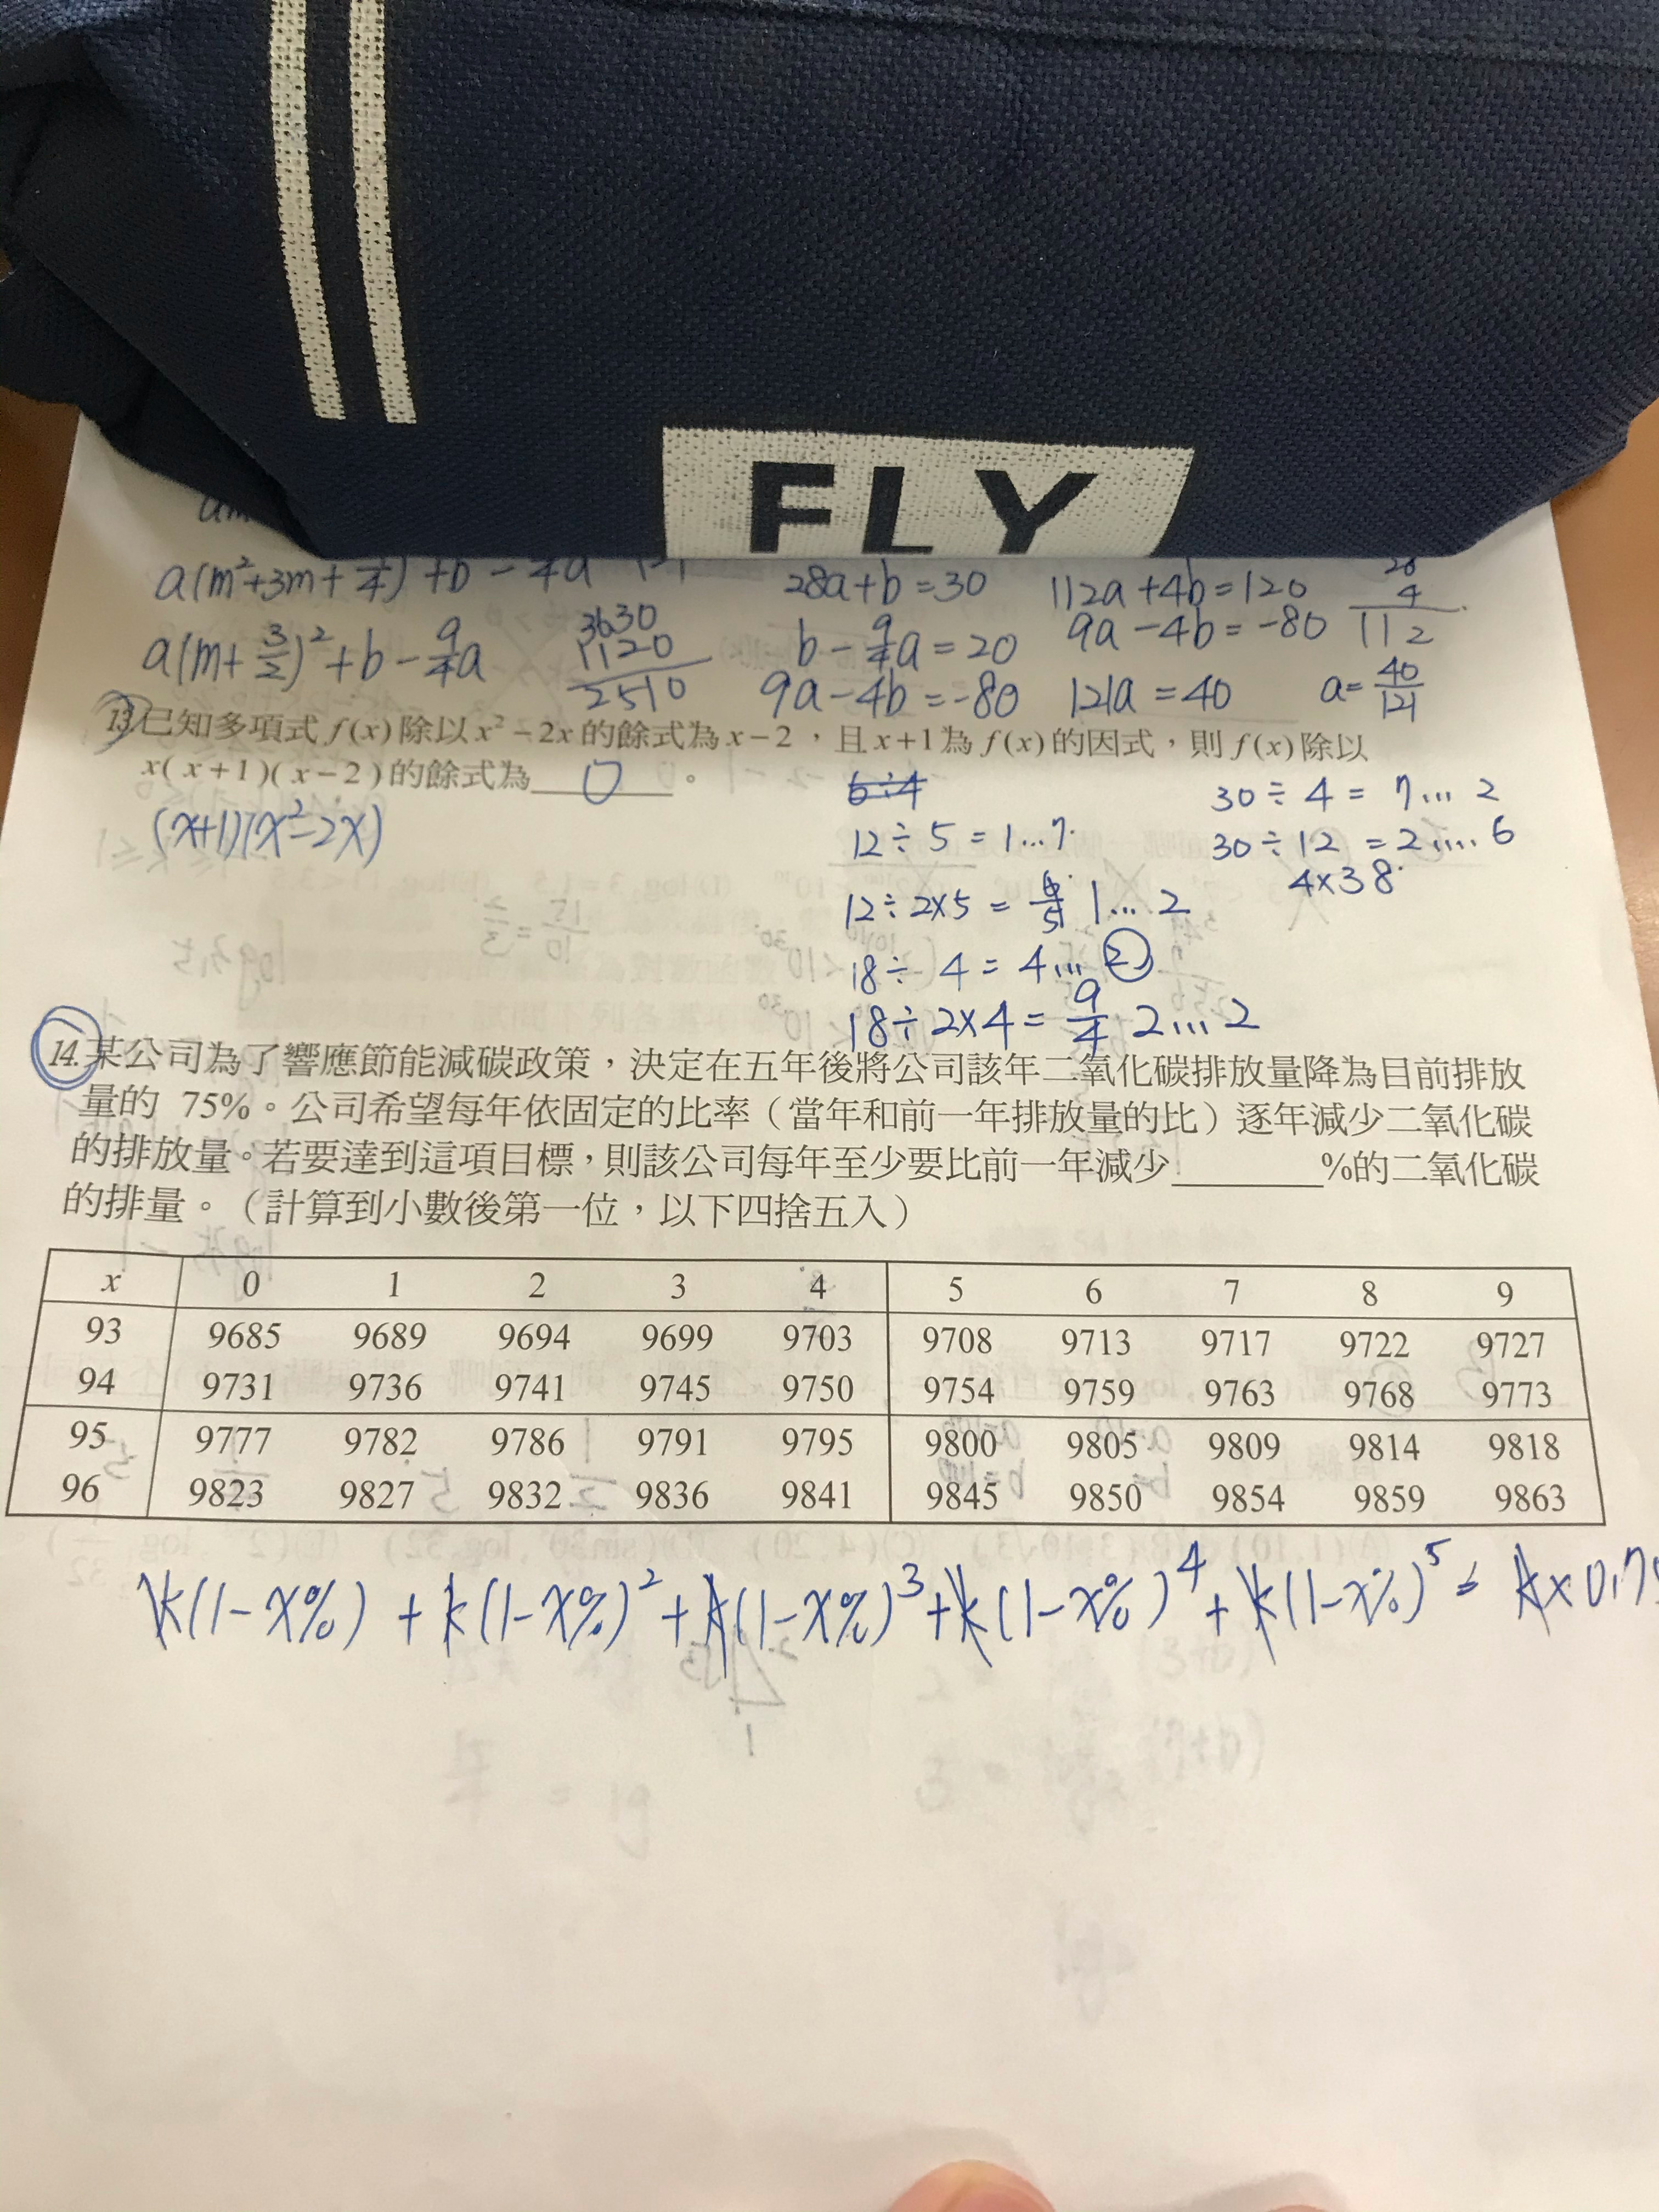 FLY
28a+b=30
112a+4b=120
28
4
112
a(m+3/2)²+b-9/4a
3630
1120
2510
b-9/4a=20
9a-4b=-80
9a-4b=-80
121a=40
a=40/121
13.已知多項式 f(x) 除以 x²-2x 的餘式為 x-2，且 x+1 為 f(x) 的因式，則 f(x) 除以
x(x+1)(x-2) 的餘式為 0 。
(x+1)(x²-2x)
6÷4
30÷4=7...2
12÷5=1...7
30÷12=2....6
4x38
12÷2x5= 1...2
18÷4=4...2
18÷2x4=9/4 2...2
14.某公司為了響應節能減碳政策，決定在五年後將公司該年二氧化碳排放量降為目前排放
量的 75%。公司希望每年依固定的比率（當年和前一年排放量的比）逐年減少二氧化碳
的排放量。若要達到這項目標，則該公司每年至少要比前一年減少______%的二氧化碳
的排量。（計算到小數後第一位，以下四捨五入）
x 0 1 2 3 4 5 6 7 8 9
93 9685 9689 9694 9699 9703 9708 9713 9717 9722 9727
94 9731 9736 9741 9745 9750 9754 9759 9763 9768 9773
95 9777 9782 9786 9791 9795 9800 9805 9809 9814 9818
96 9823 9827 9832 9836 9841 9845 9850 9854 9859 9863
k(1-x%)+k(1-x%)²+k(1-x%)³+k(1-x%)⁴+k(1-x%)⁵=k×0.75